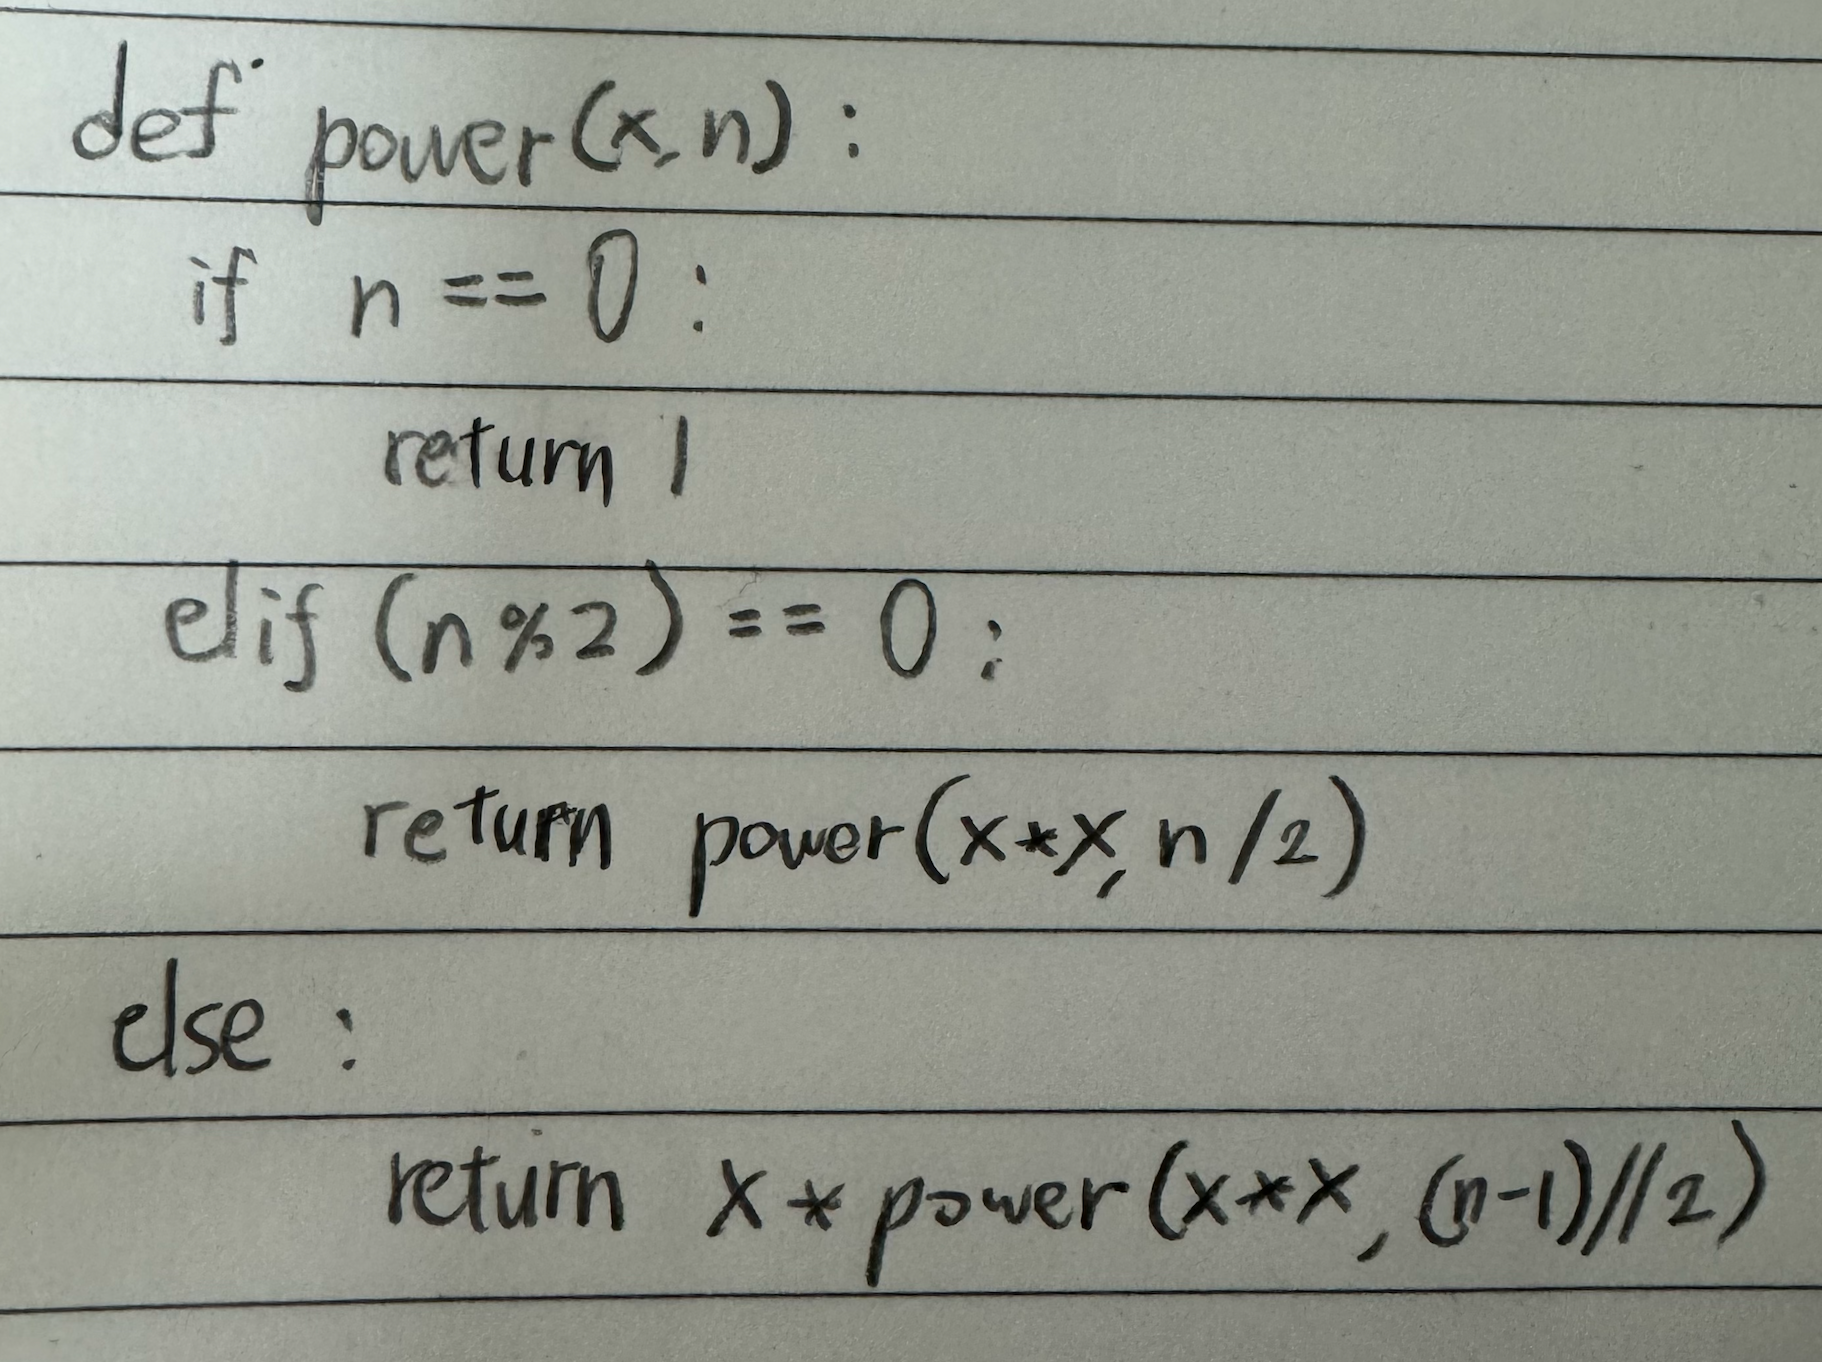 def power(x,n):
if n == 0:
return 1
elif (n%2) == 0:
return power(x*x, n/2)
else:
return x*power(x*x, (n-1)//2)